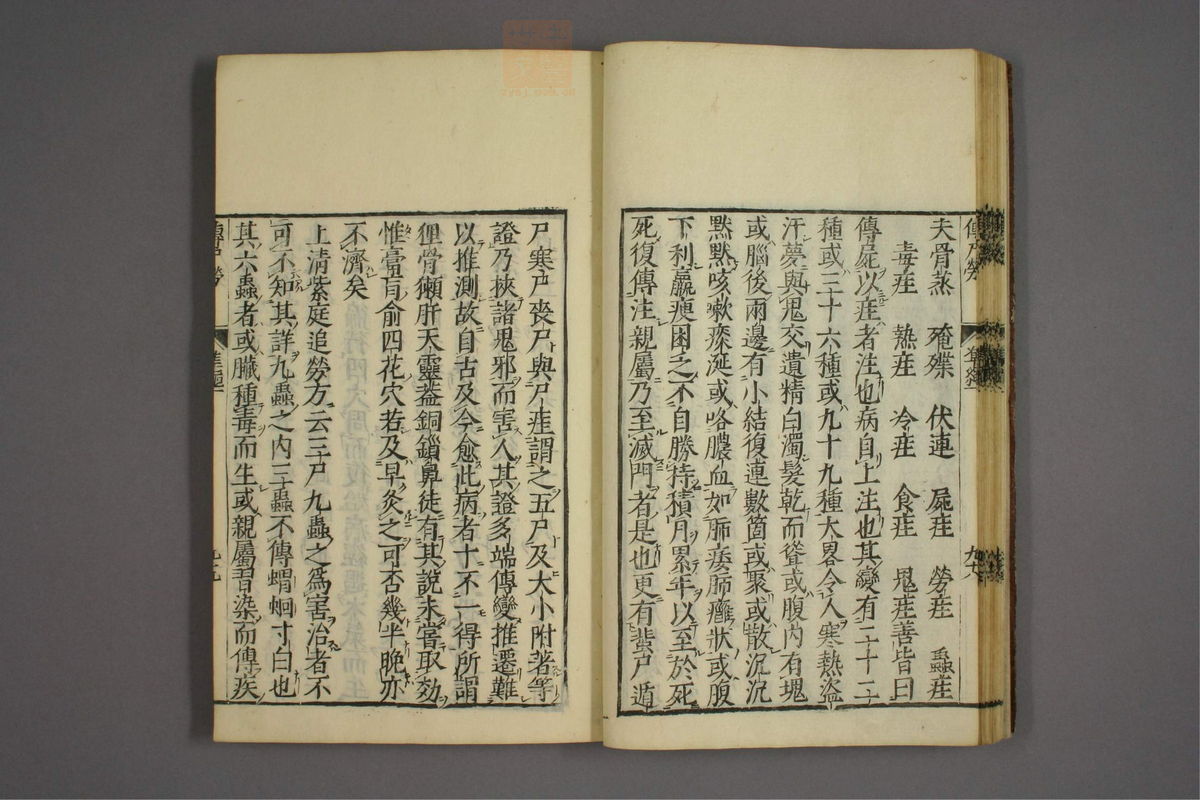 夫骨蒸　殗殜　伏連　屍疰　勞疰　蟲疰
毒疰　熱疰　冷疰　食疰　鬼疰善皆曰
傳屍以疰者注也病自上注也其變有二十二
種或三十六種或九十九種大畧令人寒熱盜
汗夢與鬼交遺精白濁髮乾而聳或腹內有塊
或腦後兩邊有小結復連數箇或聚或散沉沉
默默咳嗽痰涎或咯膿血如肺痿肺癰狀或腹
下利羸瘦困乏不自勝持積月累年以至於死
死復傳注親屬乃至滅門者是也更有蜚尸遁
尸寒尸喪尸與尸疰謂之五尸及大小附著等
證乃挾諸鬼邪而害人其證多端傳變推遷難
以推測故自古及今愈此病者十不一得所謂
狸骨獺肝天靈蓋銅鎖鼻徒有其說未嘗取効
惟膏肓俞四花穴若及早灸之可否幾半晚亦
不濟矣
上清紫庭追勞方云三尸九蟲之爲害治者不
可不知其詳九蟲之內三蟲不傳蝟蛔寸白也
其六蟲者或臟種毒而生或親屬習染而傳疾
傳尸勞
九十八
傳尸勞
九十九